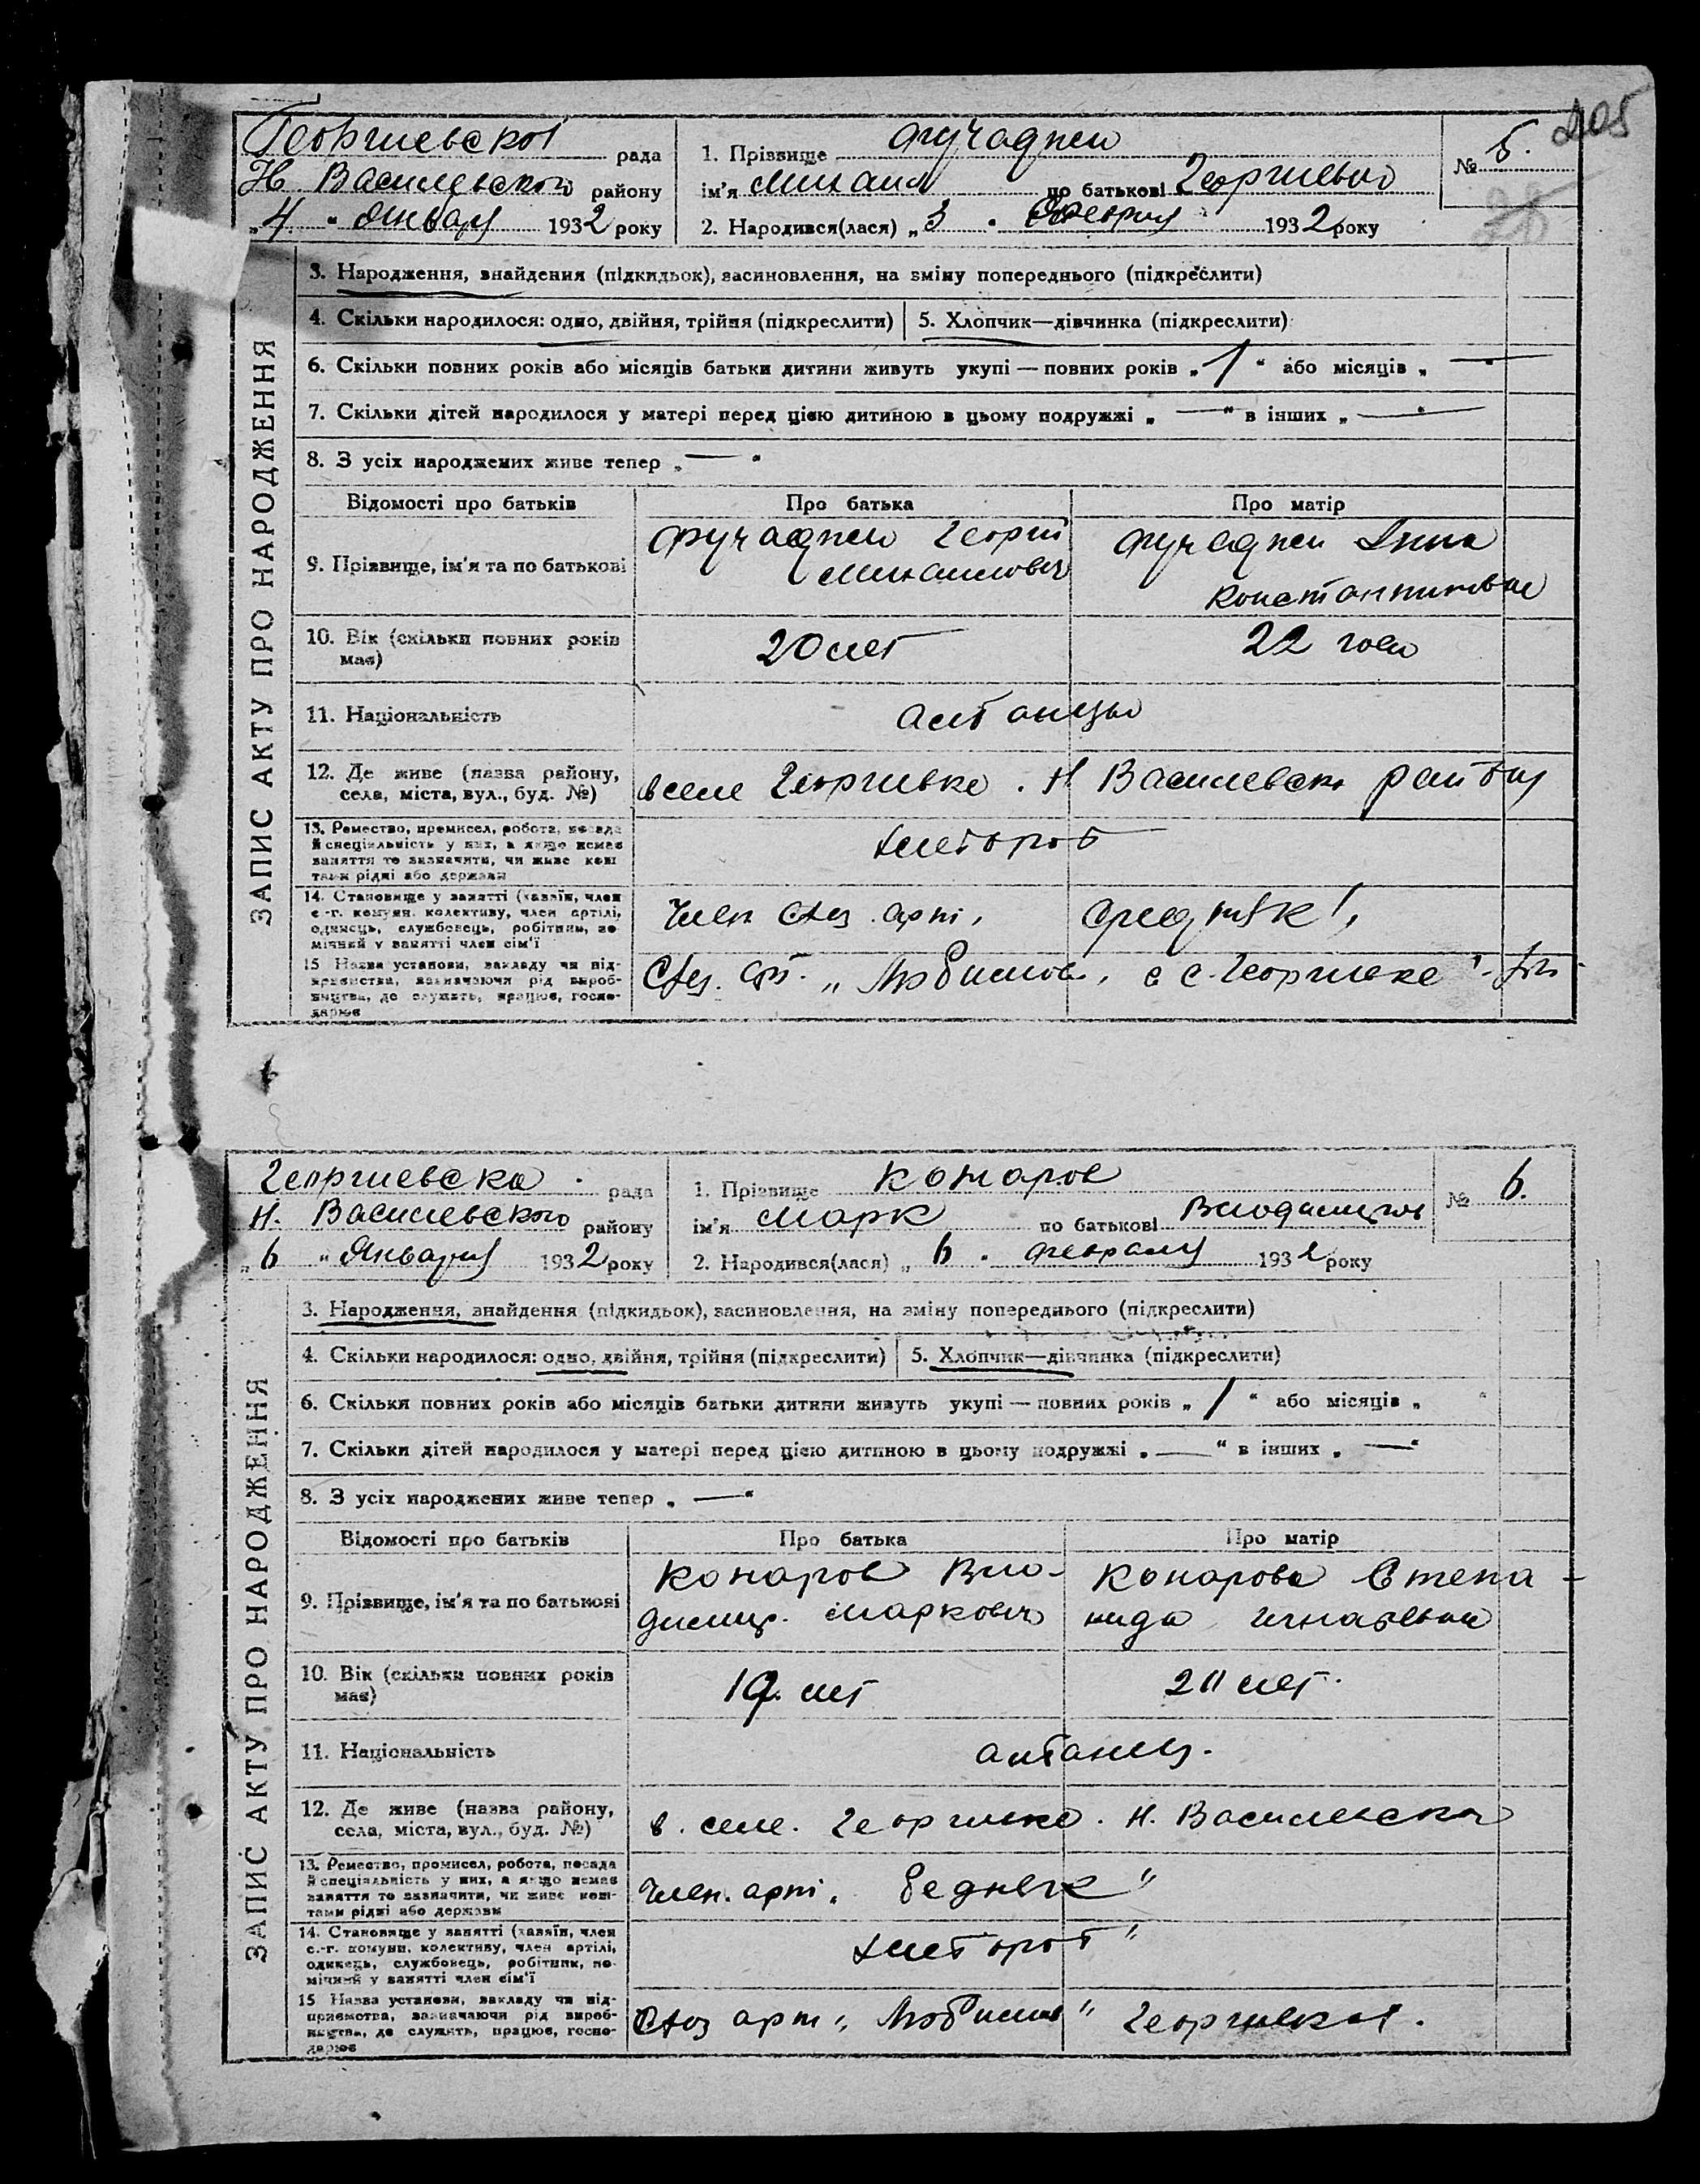 205
Георгиевской рада
Н Васильевского району
„4 " Январу 1932 року
1. Прізвище Фучаджи
ім'я Михаил по батькові Георгиевич
2. Народився(лася) „3 " 1932 року
№ 5.
ЗАПИС АКТУ ПРО НАРОДЖЕННЯ
3. Народження, знайдення (підкидьок), засиновлення, на зміну попереднього (підкреслити)
4. Скільки народилося: одно, двійня, трійня (підкреслити) 5. Хлопчик—дівчинка (підкреслити)
6. Скільки повних років або місяців батьки дитини живуть укупі — повних років „1" або місяців „—"
7. Скільки дітей народилося у матері перед цією дитиною в цьому подружжі „—" в інших „—"
8. З усіх народжених живе тепер „—"
Відомості про батьків Про батька Про матір
9. Прізвище, ім'я та по батькові Фучаджи Георгий Михаилович Фучаджи Анна Константиновна
10. Вік (скільки повних років має) 20 лет 22 года
11. Національність албанцы
12. Де живе (назва району, села, міста, вул., буд. №) в селе Георгиевке. Н Васильевско району
13. Ремество, промисел, робота, посада й спеціяльність у них, а якщо немає заняття то зазначити, чи живе коштами рідні або держави хлебороб
14. Становище у занятті (хазяїн, член с.-г. комуни, колективу, член артілі, одинець, службовець, робітник, помічний у занятті член сім'ї Член Схоз. арті, средняк
15 Назва установи, закладу чи підприємства, зазначаючи рід виробництва, де служить, працює, господарює Схоз. арт. „ с. Георгиевке
Георгиевска рада
Н. Васильевского району
„6 " Января 1932 року
1. Прізвище Комаров
ім'я Марк по батькові
2. Народився(лася) „6 " февраля 1932 року
№ 6.
ЗАПИС АКТУ ПРО НАРОДЖЕННЯ
3. Народження, знайдення (підкидьок), засиновлення, на зміну попереднього (підкреслити)
4. Скільки народилося: одно, двійня, трійня (підкреслити) 5. Хлопчик—дівчинка (підкреслити)
6. Скільки повних років або місяців батьки дитини живуть укупі — повних років „1" або місяців „ "
7. Скільки дітей народилося у матері перед цією дитиною в цьому подружжі „—" в інших „—"
8. З усіх народжених живе тепер „—"
Відомості про батьків Про батька Про матір
9. Прізвище, ім'я та по батькові Комаров Вло- димир. Маркович Комарова Степа- нида Игнатьевна
10. Вік (скільки повних років має) 19 лет лет.
11. Національність албанец.
12. Де живе (назва району, села, міста, вул., буд. №) в. селе. Георгиевке. Н. Васильевска
13. Ремество, промисел, робота, посада й спеціяльність у них, а якщо немає заняття то зазначити, чи живе коштами рідні або держави Член. арті. бедняк"
14. Становище у занятті (хазяїн, член с.-г. комуни, колективу, член артілі, одинець, службовець, робітник, помічний у занятті член сім'ї хлебороб"
15 Назва установи, закладу чи підприємства, зазначаючи рід виробництва, де служить, працює, господарює Схоз арт „ " Георгиевка.